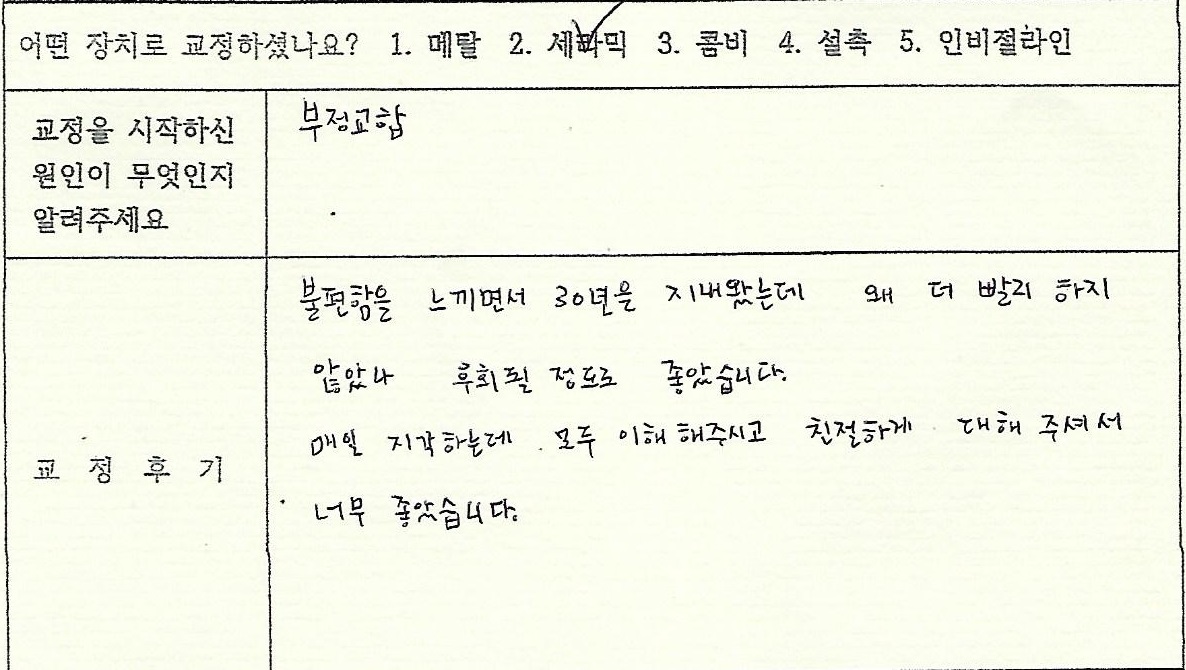 어떤 장치로 교정하셨나요? 1. 메탈 2. 세라믹 3. 콤비 4. 설측 5. 인비절라인
교정을 시작하신
원인이 무엇인지
알려주세요
부정교합
교 정 후 기
불편함을 느끼면서 30년을 지내왔는데 왜 더 빨리 하지
않았나 후회될 정도로 좋았습니다.
매일 지각하는데 모두 이해 해주시고 친절하게 대해 주셔서
너무 좋았습니다.